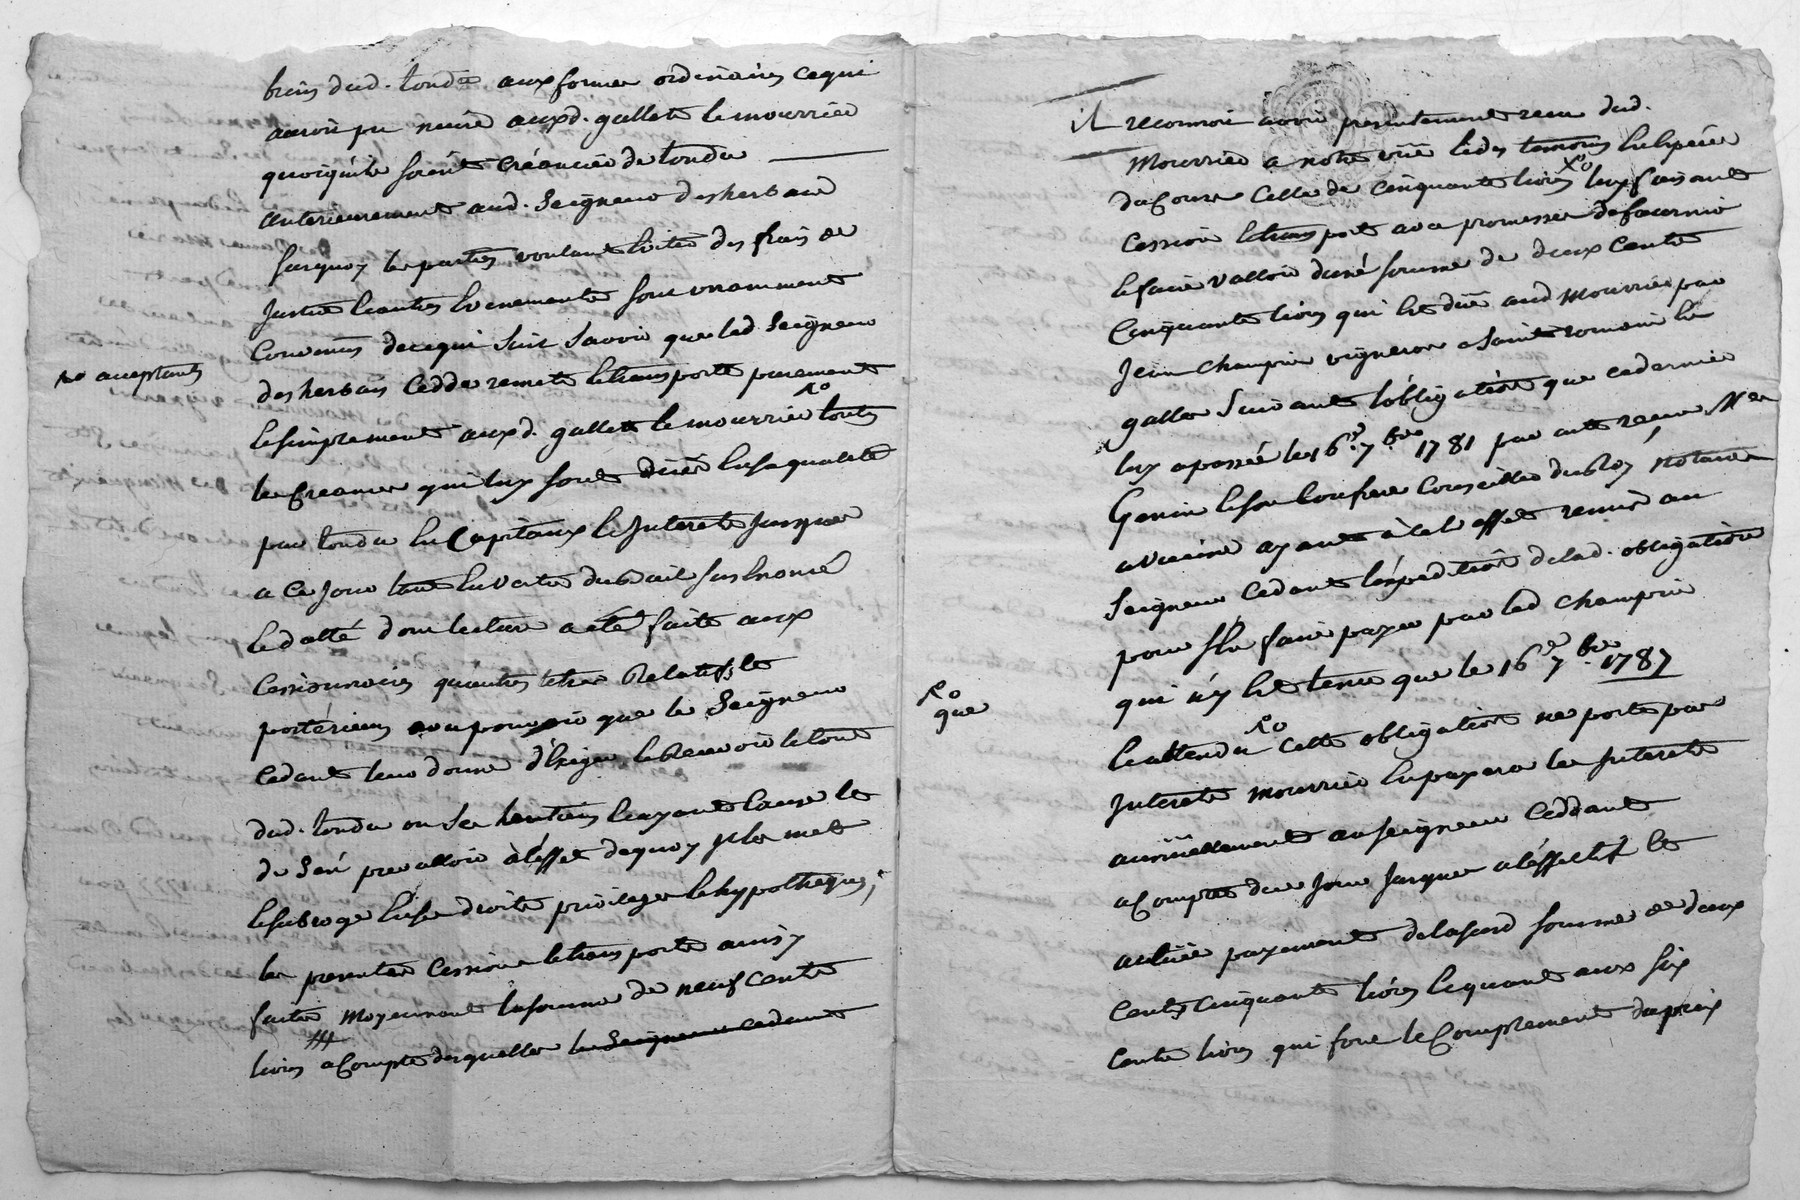 biens dud. tondu aux formes ordinaires ce qui
auroit pu nuire auxd. gallet et mourrier
quoiqu'ils soient créanciers de tondu
anterieurement aud. Seigneur desherbais
surquoy les parties voulant eviter des frais de
Justice et autres evenements sont unanimement
Convenus de ce qui suit savoir que led Seigneur
ro acceptants
desherbais Cedde remet et transporte purement
et simplement auxd. gallet et mourrier ro touts
les creances qui luy sont dües en sa qualité
par tondu en Capitaux et Interets Jusques
a ce Jour tant en vertu du bail sus enoncé
et datté dont lecture a eté faite aux
Cessionnaires qu'autres titres Relatifs et
postérieurs avec pouvoir que le Seigneur
cedant leur donne d'Exiger et recevoir le tout
dud. tondu ou ses heritiers et ayant cause et
de s'en prevalloir à l'effet de quoy il les met
et subroge en ses droits privileges et hypotheques,
la presente Cession et transporte ainsy
faite moyennant la somme de neuf cents
livres a Compte desquelles le Seigneur cedant
il reconnoit avoir presentement reçu dud.
Mourrier a notre vüe et des temoins en especes
du Cours Celle de Cinquante livres ro luy faisant
Cession et transport avec promesse de fournir
et faire valloir d'une somme de deux Cents
Cinquante livres qui est düe aud Mourrier par
Jean Champin vigneron a Saint romain en
galles Suivant l'obligation que ce dernier
luy a passée le 16e 7bre 1781 par acte recu Me
Genin et son Confrere Conseillers du Roy notaires
a vienne ayant à cet effet remis au
Seigneur Cedant l'expedition de lad. obligation
pour s'en faire payer par led Champin
qui n'y est tenu que le 16e 7bre 1787
ro
que
et attendu ro cette obligation ne porte pas
Interets mourrier en payera les Interets
annuellement au seigneur Ceddant
a Compter de ce Jour Jusques a l'effectif et
entier payement de lad somme de deux
Cents Cinquante livres et quant aux six
Cents livres qui font le Complement du prix